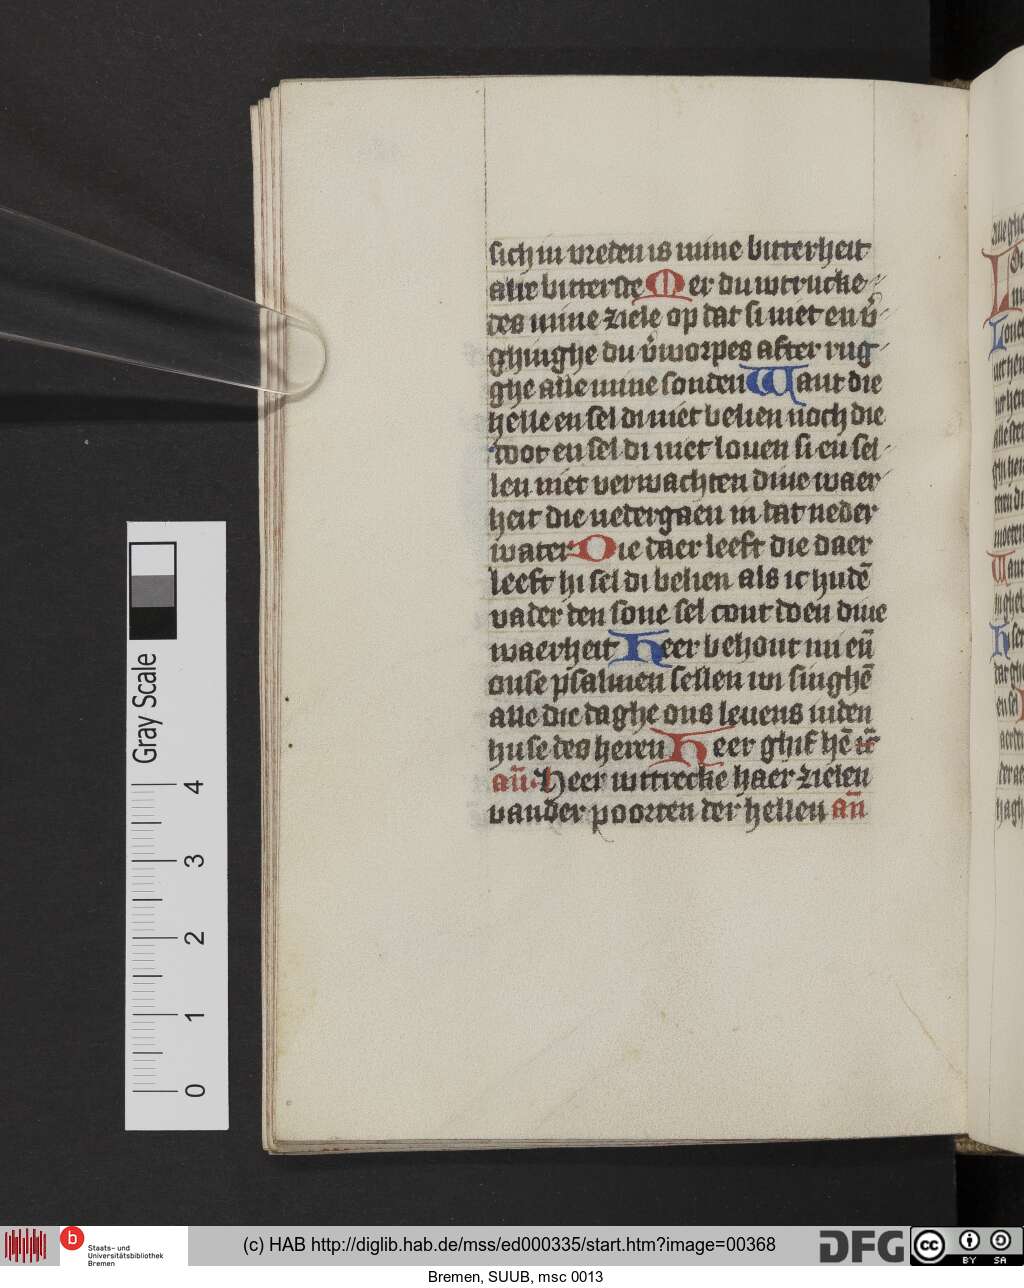 sich in vreden is mine bitterheit
alre bitterste Mer du wtrucke-
des mine ziele op dat si niet en v̄-
ghinghe du v̄worpes after rug-
ghe alle mine sonden Want die
helle en sel di niet belien noch die
doot en sel di niet louen si en sel-
len niet verwachten dine waer-
heit die nedergaen in dat neder
water Die daer leeft die daer
leeft hi sel di belien als ic hudē
vader den sone sel cont doen dine
waerheit Heer behout mi eñ
onse psalmen sellen wi singhē
alle die daghe ons leuens inden
huse des heren Heer ghif hē
añ. Heer wttrecke haer zielen
vander poorten der hellen añ
Gray Scale
4
3
2
1
0
b
Staats- und
Universitätsbibliothek
Bremen
(c) HAB http://diglib.hab.de/mss/ed000335/start.htm?image=00368
DFG
cc
BY SA
Bremen, SUUB, msc 0013